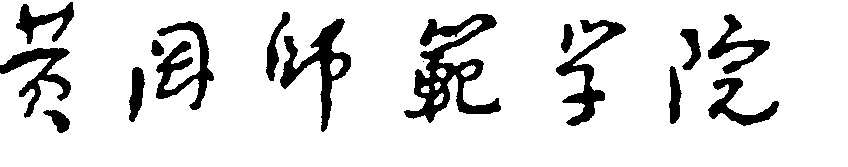 黄冈师範学院